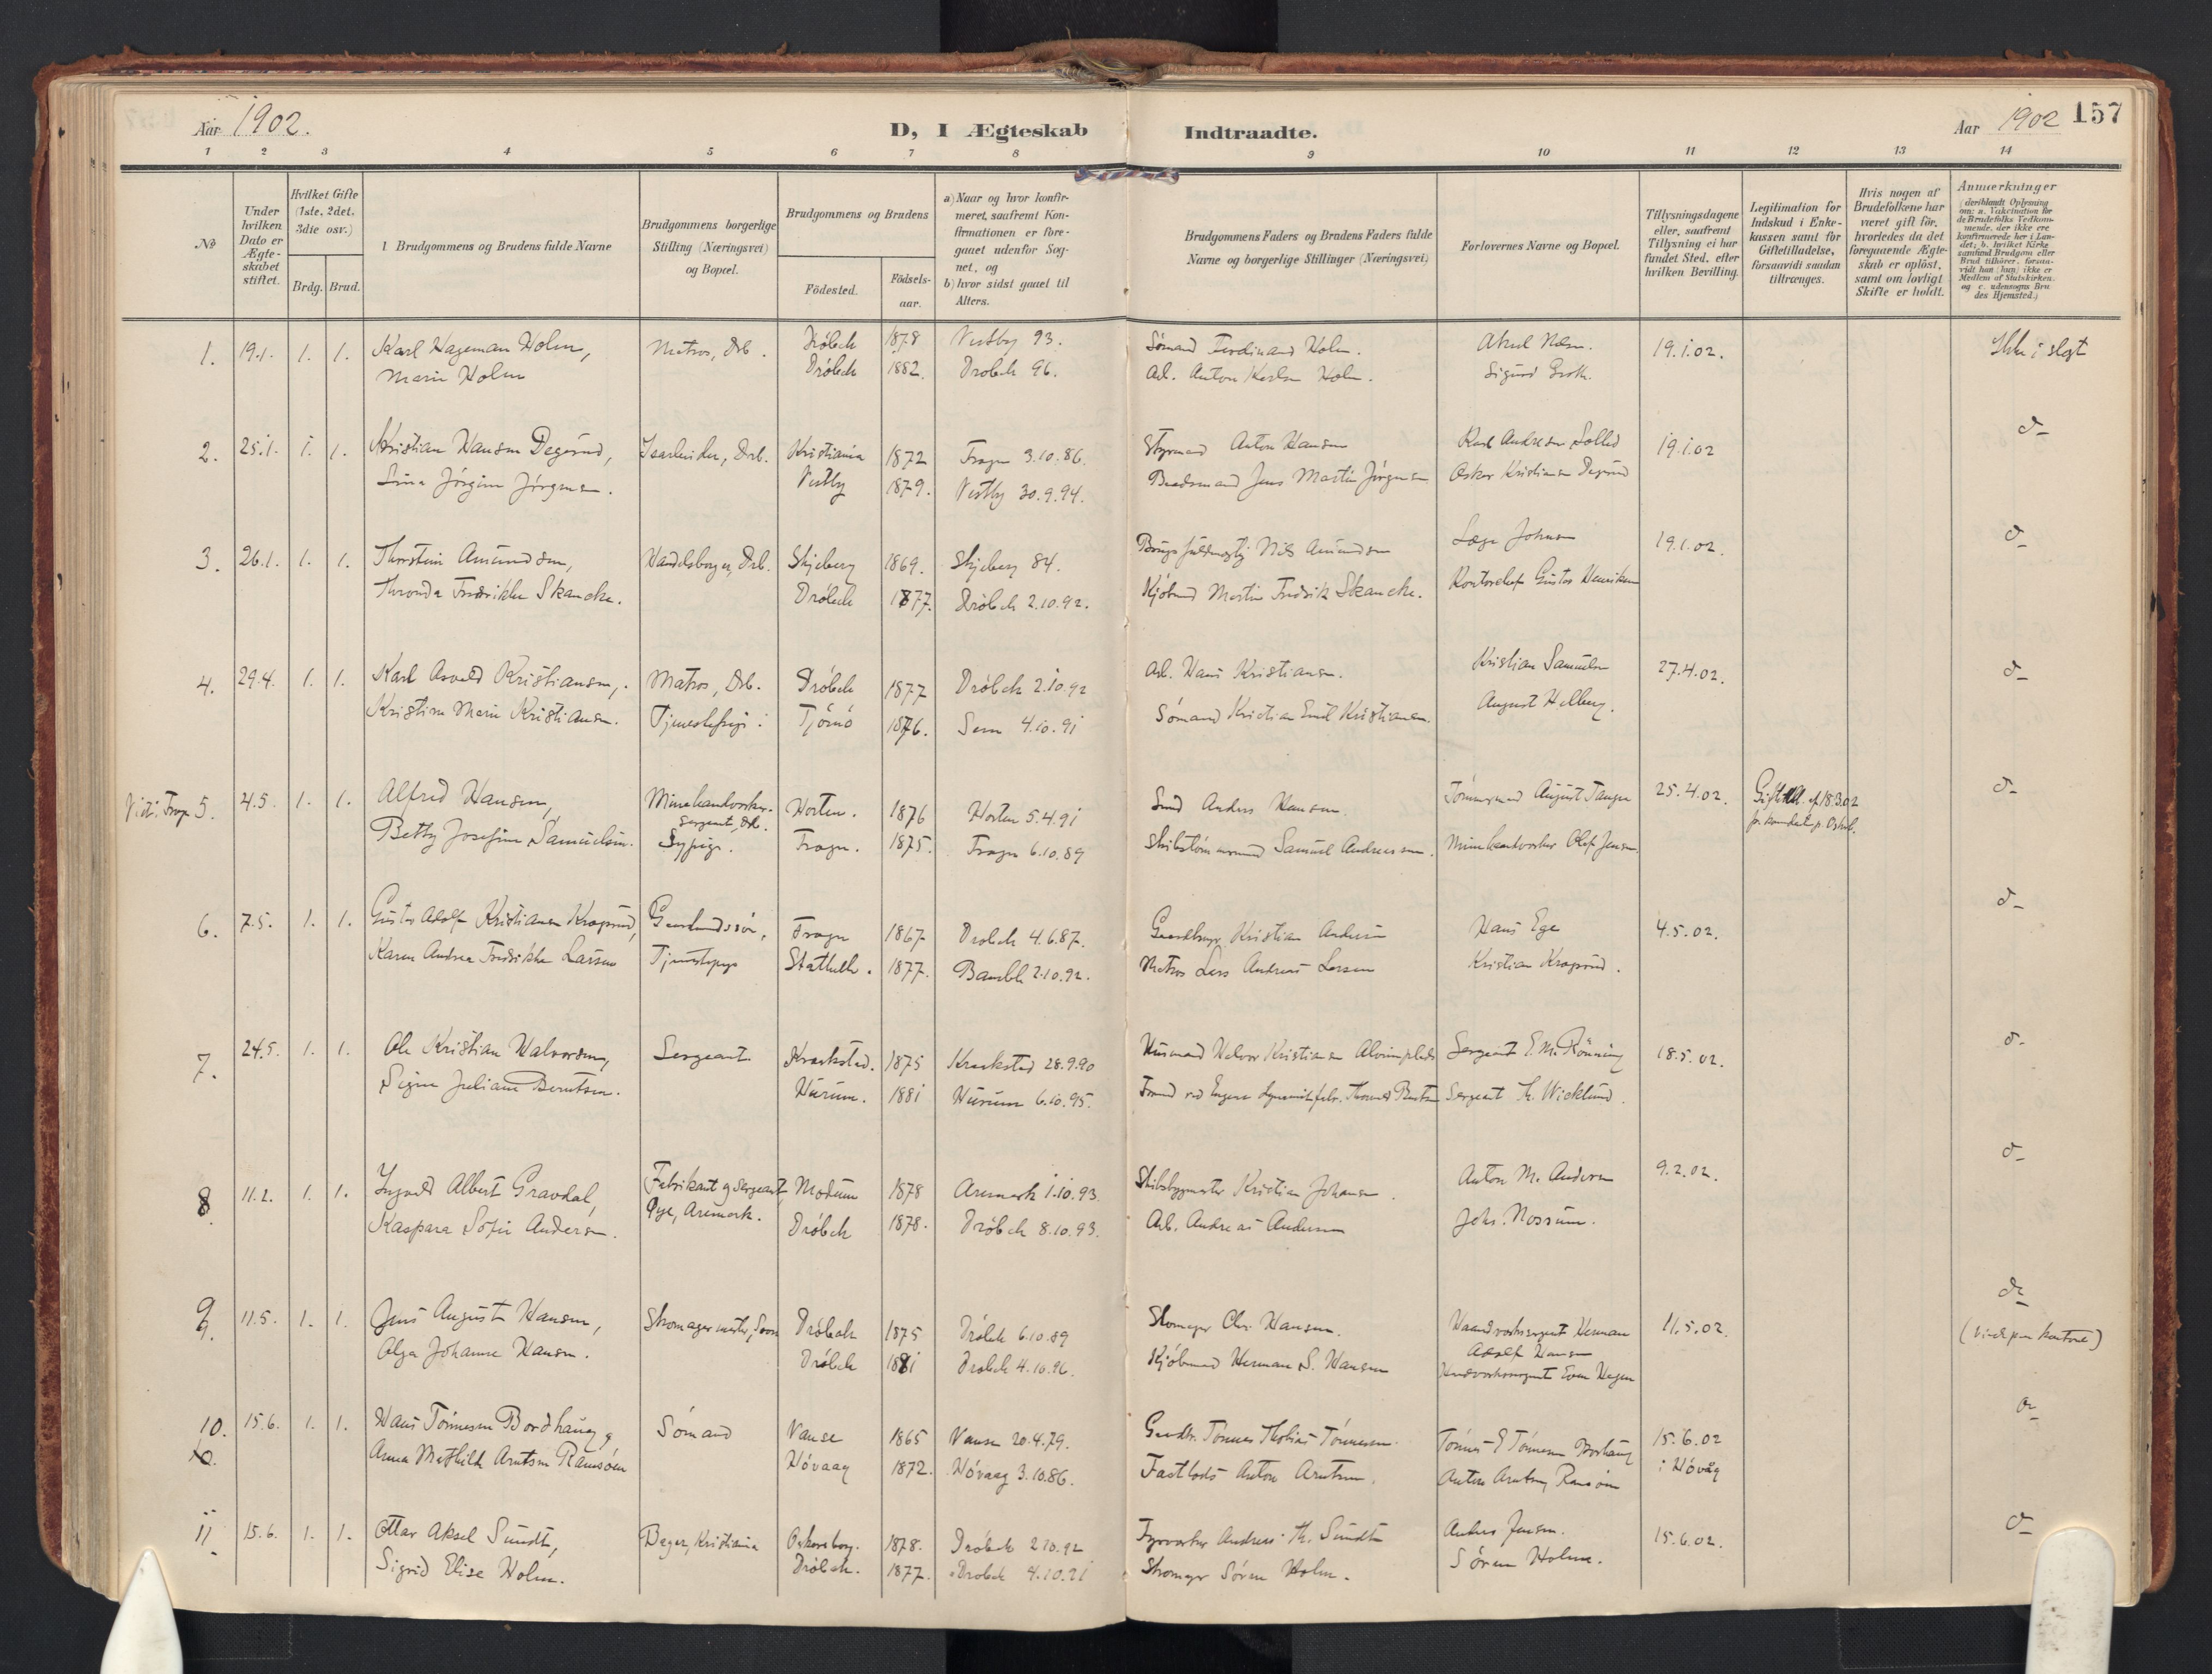 Aar 1902.
D, I Ægteskab Indtraadte.
Aar 1902 157
1 2 3 4 5 6 7 8 9 10 11 12 13 14
No
Under hvilken Dato er Ægteskabet stiftet.
Hvilket Gifte (1ste, 2det, 3die osv.)
Brdg. Brud.
Brudgommens og Brudens fulde Navne
Brudgommens borgerlige Stilling (Næringsvei) og Bopæl.
Brudgommens og Brudens
Födested. Födselsaar.
a) Naar og hvor konfirmeret, saafremt Konfirmationen er foregaaet udenfor Sognet, og
b) hvor sidst gaaet til Alters.
Brudgommens Faders og Brudens Faders fulde Navne og borgerlige Stillinger (Næringsvei)
Forlovernes Navne og Bopæl.
Tillysningsdagene eller, saafremt Tillysning ei har fundet Sted, efter hvilken Bevilling.
Legitimation for Indskud i Enkekassen samt for Giftetilladelse, forsaavidt saadan tiltrænges.
Hvis nogen af Brudefolkene har været gift för, hvorledes da det foregaaende Ægteskab er oplöst, samt om lovligt Skifte er holdt.
Anmerkninger (deriblandt Oplysning om: a. Vakcination for de Brudefolks Vedkommende, der ikke ere konfirmerede her i Landet; b. hvilket Kirkesamfund Brudgom eller Brud tilhörer, forsaavidt han (hun) ikke er Medlem af Statskirken, og c. udensogns Brudes Hjemsted.)
1. 19.1. 1. 1. Karl Hageman Holm, Matros, Drb. Dröbak 1878 Vestby 93. Sömand Ferdinand Holm. 19.1.02. Ikke i slegt
Marie Holm Dröbak 1882. Dröbak 96. Arb. Anton Karlsen Holm. Sigurd
2. 25.1. 1. 1. Kristian Hansen Degerud, Drb. Kristiania 1872 Frogn 3.10.86. Styrmand Anton Hansen Karl Andresen 19.1.02 d-
Jörgine Jörgensen. Vestby 1879. Vestby 30.9.94. Jens Martin Jörgensen Oskar Kristiansen Degerud
3. 26.1. 1. 1. Thorstein Amundsen, Handelsborger, Drb. Skjeberg 1869. Skjeberg 84. Nils Amundsen Læge Johnsen 19.1.02. d-
Thronda Fredrikke Skancke. Dröbak 1877. Dröbak 2.10.92. Kjöbmand Martin Fredrik Skancke. Kontorchef Gustav Henriksen
4. 29.4. 1. 1. Karl Osvald Kristiansen, Matros, Drb. Dröbak 1877 Dröbak 2.10.92 Arb. Hans Kristiansen. Kristian Samuelsen 27.4.02. d-
Kristine Marie Kristiansen. Tjenestepige. Tjömö 1876. Sem 4.10.91 Sömand Kristian Emil Kristiansen. August Helberg.
5. 4.5. 1. 1. Alfred Hansen, Minehandverker-sergeant, Drb. Horten. 1876 Horten 5.4.91 Anders Hansen. Tömmermand August Tangen 25.4.02. d-
Betty Josefine Samuelsen. Sypige. Frogn. 1875. Frogn 6.10.89 Skibstömmermand Samuel Andreassen. Minehandverker Olaf Jensen
6. 7.5. 1. 1. Gustav Adolf Kristiansen Krogsrud, Gaardmandssön, Frogn 1867 Dröbak 4.6.87. Gaardbruger Kristian Andersen Hans Ege 4.5.02. d-
Karen Andrea Fredrikke Larsen Tjenestepige Stathelle. 1877. Bamble 2.10.92. Matros Lars Andreas Larsen Kristian Krogsrud.
7. 24.5. 1. 1. Ole Kristian Halvorsen, Sergeant. Kraakstad. 1875 Kraakstad 28.9.90 Husmand Halvor Kristiansen Sergeant E. M. Rönning 18.5.02. d-
Signe Juliane Berntsen. Hurum. 1881 Hurum 6.10.95. Sergeant Th. Wicklund.
8. 11.2. 1. 1. Ingvald Albert Gravdal, Fabrikant og Sergeant Modum 1878 Aremark 1.10.93. Skibsbygmester Kristian Johansen. Anton M. Andersen 9.2.02. d-
Kaspara Sofie Andersen. Øye, Aremark. Dröbak 1878. Dröbak 8.10.93. Arb. Andreas Andersen Johs. Mossum.
9. 11.5. 1. 1. Jens August Hansen, Skomagermester, Soon Dröbak 1875 Dröbak 6.10.89 Skomager Chr. Hansen. Haandverksergeant Herman Adolf Hansen 11.5.02. do
Olga Johanne Hansen. Dröbak 1881 Dröbak 4.10.96. Kjöbmand Herman S. Hansen Handverksergeant Even Hagen
10. 15.6. 1. 1. Hans Tönnesen Bordhaug, Sömand Vanse 1865 Vanse 20.4.79. Gaardbr. Tönnes Thobias Tönnesen. Tönnes E Tönnesen Bordhaug 15.6.02 d-
Anna Mathilde Arntsen Ramsöen Hövaag 1872. Hövaag 3.10.86. Fastlods Anton Arntsen. Anton Arntsen Ramsöen i Hövåg
11. 15.6. 1. 1. Ottar Aksel Sundt, Bager, Kristiania Oskarsborg. 1878. Dröbak 2.10.92 Fyrvorter Andreas Th. Sundt Anders Jensen. 15.6.02. d-
Sigrid Elise Holm. Dröbak. 1877. Dröbak 4.10.91 Skomager Sören Holm. Sören Holm.